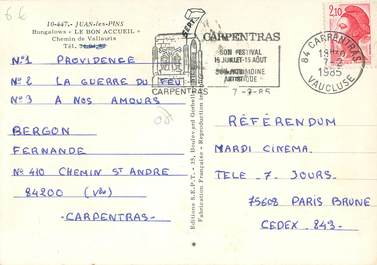 66
10-447. - JUAN-les-PINS
Bungalows « LE BON ACCUEIL »
Chemin de Vallauris
Tél.
N°1 PROVIDENCE
N°2 LA GUERRE DU FEU
N°3 A NOS AMOURS
BERGON
FERNANDE
N° 410 CHEMIN ST ANDRE
84200 (Vse)
-CARPENTRAS-
Editions S.E.P.T. - 15, Boulevard
Fabrication Française - Reproduction
CARPENTRAS
CARPENTRAS
SON FESTIVAL
15 JUILLET-15 AOUT
SON PATRIMOINE
ARTISTIQUE
7-2-85
84 CARPENTRAS
7-2
1985
VAUCLUSE
2,10
RÉFÉRENDUM
MARDI CINEMA.
TELE - 7 JOURS.
75608 PARIS BRUNE
CEDEX -843-